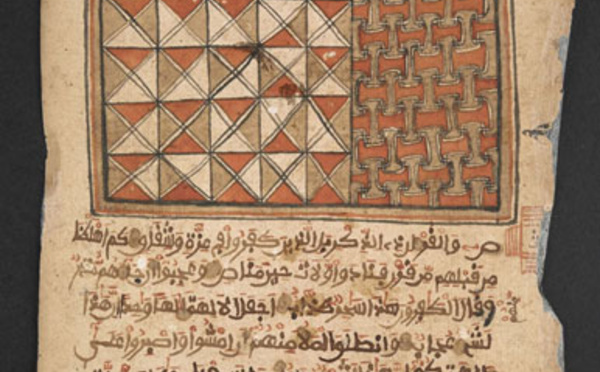 ص والقرءان ذى الذكر بل الذين كفروا في عزة وشقاق كم اهلكنا
من قبلهم من قرن فنادوا ولات حين مناص وعجبوا ان جاءهم منذر
وقال الكفرون هذا سحر كذاب اجعل الالهة الها وحدا ان هذا
لشىء عجاب وانطلق الملا منهم ان امشوا واصبروا على